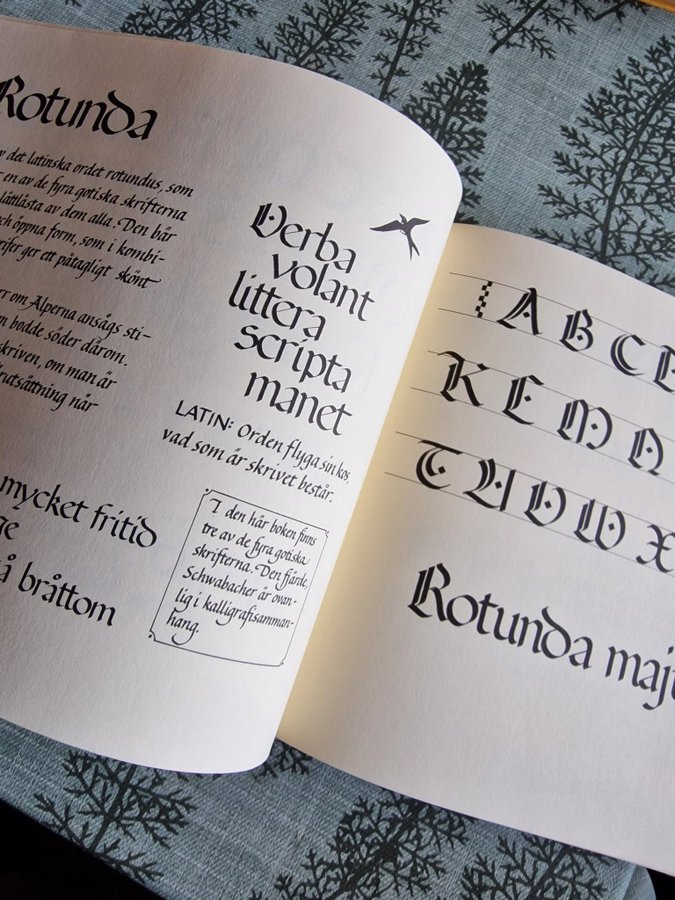 Rotunda
det latinska ordet rotundus, som
en av de fyra gotiska skrifterna
lättlästa av dem alla. Den bär
öppna form, som i kombi-
ger ett påtagligt skönt
om Alperna ansågs sti-
bodde söder därom.
skriven, om man är
när
mycket fritid
bråttom
Verba
volant
littera
scripta
manet
LATIN: Orden flyga sin kos,
vad som är skrivet består.
I den här boken finns
tre av de fyra gotiska
skrifterna. Den fjärde,
Schwabacher är ovan-
lig i kalligrafisamman-
hang.
A B C
K L M N
T U V W X
Rotunda maj